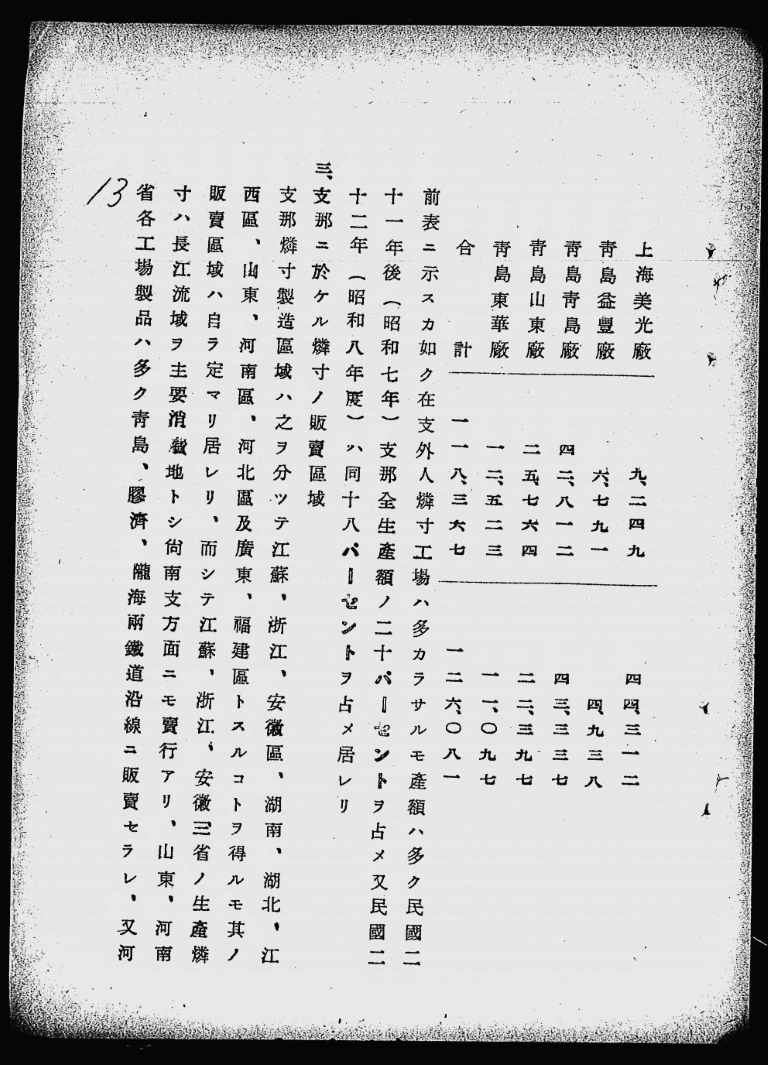 上海美光廠　九、二四九　四四、三一二
靑島益豐廠　六、七九一　四、九三八
靑島靑島廠　四二、八一二　四三、三三七
靑島山東廠　二五、七六四　二二、三九七
靑島東華廠　一二、五二三　一一、〇九七
合計　一一八、三六七　一二六、〇八一
前表ニ示スカ如ク在支外人燐寸工場ハ多カラサルモ產額ハ多ク民國二
十一年後（昭和七年）支那全生產額ノ二十パーセントヲ占メ又民國二
十二年（昭和八年度）ハ同十八パーセントヲ占メ居レリ
三、支那ニ於ケル燐寸ノ販賣區域
支那燐寸製造區域ハ之ヲ分ツテ江蘇、浙江、安徽區、湖南、湖北、江
西區、山東、河南區、河北區及廣東、福建區トスルコトヲ得ルモ其ノ
販賣區域ハ自ラ定マリ居レリ、而シテ江蘇、浙江、安徽三省ノ生產燐
寸ハ長江流域ヲ主要消費地トシ尙南支方面ニモ賣行アリ、山東、河南
省各工場製品ハ多ク靑島、膠濟、隴海兩鐵道沿線ニ販賣セラレ、又河
13